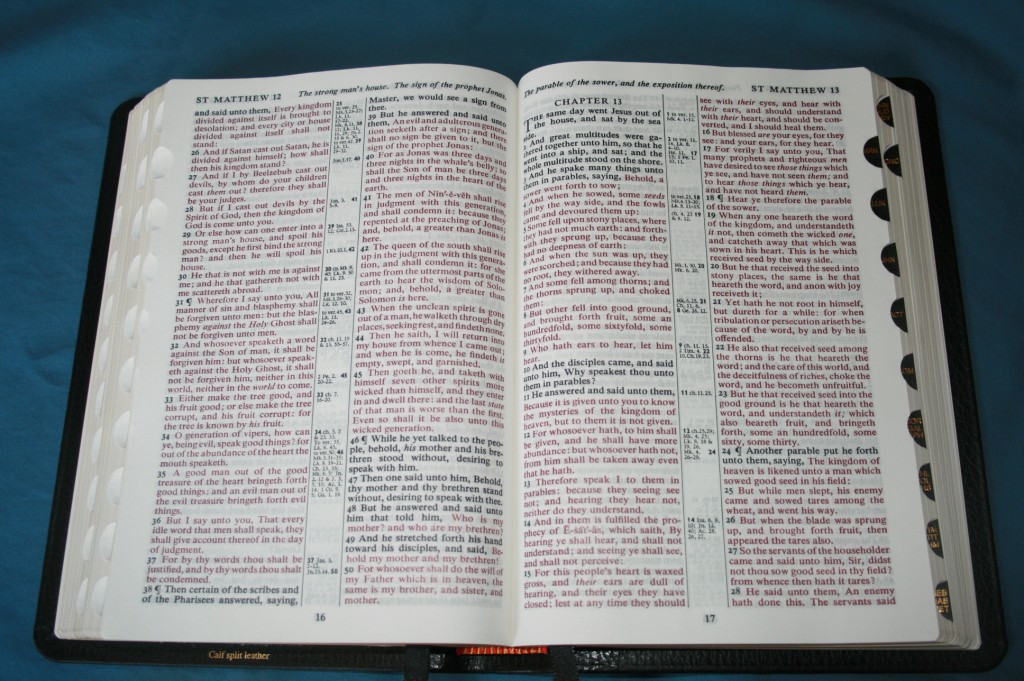 ST MATTHEW 12
The strong man's house. The sign of the prophet Jonas.
and said unto them, Every kingdom
divided against itself is brought to
desolation; and every city or house
divided against itself shall not
stand:
26 And if Satan cast out Satan, he is
divided against himself; how shall
then his kingdom stand?
27 And if I by Beelzebub cast out
devils, by whom do your children
cast them out? therefore they shall
be your judges.
28 But if I cast out devils by the
Spirit of God, then the kingdom of
God is come unto you.
29 Or else how can one enter into a
strong man's house, and spoil his
goods, except he first bind the strong
man? and then he will spoil his
house.
30 He that is not with me is against
me; and he that gathereth not with
me scattereth abroad.
31 ¶ Wherefore I say unto you, All
manner of sin and blasphemy shall
be forgiven unto men: but the blas-
phemy against the Holy Ghost shall
not be forgiven unto men.
32 And whosoever speaketh a word
against the Son of man, it shall be
forgiven him: but whosoever speak-
eth against the Holy Ghost, it shall
not be forgiven him, neither in this
world, neither in the world to come.
33 Either make the tree good, and
his fruit good; or else make the tree
corrupt, and his fruit corrupt: for
the tree is known by his fruit.
34 O generation of vipers, how can
ye, being evil, speak good things? for
out of the abundance of the heart the
mouth speaketh.
35 A good man out of the good
treasure of the heart bringeth forth
good things: and an evil man out of
the evil treasure bringeth forth evil
things.
36 But I say unto you, That every
idle word that men shall speak, they
shall give account thereof in the day
of judgment.
37 For by thy words thou shalt be
justified, and by thy words thou shalt
be condemned.
38 ¶ Then certain of the scribes and
of the Pharisees answered, saying,
Master, we would see a sign from
thee.
39 But he answered and said unto
them, An evil and adulterous genera-
tion seeketh after a sign; and there
shall no sign be given to it, but the
sign of the prophet Jonas:
40 For as Jonas was three days and
three nights in the whale's belly; so
shall the Son of man be three days
and three nights in the heart of the
earth.
41 The men of Nin'-ĕ-vēh shall rise
in judgment with this generation,
and shall condemn it: because they
repented at the preaching of Jonas;
and, behold, a greater than Jonas is
here.
42 The queen of the south shall rise
up in the judgment with this genera-
tion, and shall condemn it: for she
came from the uttermost parts of the
earth to hear the wisdom of Solo-
mon; and, behold, a greater than
Solomon is here.
43 When the unclean spirit is gone
out of a man, he walketh through dry
places, seeking rest, and findeth none.
44 Then he saith, I will return into
my house from whence I came out;
and when he is come, he findeth it
empty, swept, and garnished.
45 Then goeth he, and taketh with
himself seven other spirits more
wicked than himself, and they enter
in and dwell there: and the last state
of that man is worse than the first.
Even so shall it be also unto this
wicked generation.
46 ¶ While he yet talked to the peo-
ple, behold, his mother and his bre-
thren stood without, desiring to
speak with him.
47 Then one said unto him, Behold,
thy mother and thy brethren stand
without, desiring to speak with thee.
48 But he answered and said unto
him that told him, Who is my
mother? and who are my brethren?
49 And he stretched forth his hand
toward his disciples, and said, Be-
hold my mother and my brethren!
50 For whosoever shall do the will of
my Father which is in heaven, the
same is my brother, and sister, and
mother.
16
The parable of the sower, and the exposition thereof.
ST MATTHEW 13
CHAPTER 13
THE same day went Jesus out of
the house, and sat by the sea
side.
2 And great multitudes were ga-
thered together unto him, so that he
went into a ship, and sat; and the
whole multitude stood on the shore.
3 And he spake many things unto
them in parables, saying, Behold, a
sower went forth to sow;
4 And when he sowed, some seeds
fell by the way side, and the fowls
came and devoured them up:
5 Some fell upon stony places, where
they had not much earth: and forth-
with they sprung up, because they
had no deepness of earth:
6 And when the sun was up, they
were scorched; and because they had
no root, they withered away.
7 And some fell among thorns; and
the thorns sprung up, and choked
them:
8 But other fell into good ground,
and brought forth fruit, some an
hundredfold, some sixtyfold, some
thirtyfold.
9 Who hath ears to hear, let him
hear.
10 And the disciples came, and said
unto him, Why speakest thou unto
them in parables?
11 He answered and said unto them,
Because it is given unto you to know
the mysteries of the kingdom of
heaven, but to them it is not given.
12 For whosoever hath, to him shall
be given, and he shall have more
abundance: but whosoever hath not,
from him shall be taken away even
that he hath.
13 Therefore speak I to them in
parables: because they seeing see
not; and hearing they hear not,
neither do they understand.
14 And in them is fulfilled the pro-
phecy of Ē-śāi'-ăs, which saith, By
hearing ye shall hear, and shall not
understand; and seeing ye shall see,
and shall not perceive:
15 For this people's heart is waxed
gross, and their ears are dull of
hearing, and their eyes they have
closed; lest at any time they should
see with their eyes, and hear with
their ears, and should understand
with their heart, and should be con-
verted, and I should heal them.
16 But blessed are your eyes, for they
see: and your ears, for they hear.
17 For verily I say unto you, That
many prophets and righteous men
have desired to see those things which
ye see, and have not seen them; and
to hear those things which ye hear,
and have not heard them.
18 ¶ Hear ye therefore the parable
of the sower.
19 When any one heareth the word
of the kingdom, and understandeth
it not, then cometh the wicked one,
and catcheth away that which was
sown in his heart. This is he which
received seed by the way side.
20 But he that received the seed into
stony places, the same is he that
heareth the word, and anon with joy
receiveth it;
21 Yet hath he not root in himself,
but dureth for a while: for when
tribulation or persecution ariseth be-
cause of the word, by and by he is
offended.
22 He also that received seed among
the thorns is he that heareth the
word; and the care of this world, and
the deceitfulness of riches, choke the
word, and he becometh unfruitful.
23 But he that received seed into the
good ground is he that heareth the
word, and understandeth it; which
also beareth fruit, and bringeth
forth, some an hundredfold, some
sixty, some thirty.
24 ¶ Another parable put he forth
unto them, saying, The kingdom of
heaven is likened unto a man which
sowed good seed in his field:
25 But while men slept, his enemy
came and sowed tares among the
wheat, and went his way.
26 But when the blade was sprung
up, and brought forth fruit, then
appeared the tares also.
27 So the servants of the householder
came and said unto him, Sir, didst
not thou sow good seed in thy field?
from whence then hath it tares?
28 He said unto them, An enemy
hath done this. The servants said
17
Calf split leather